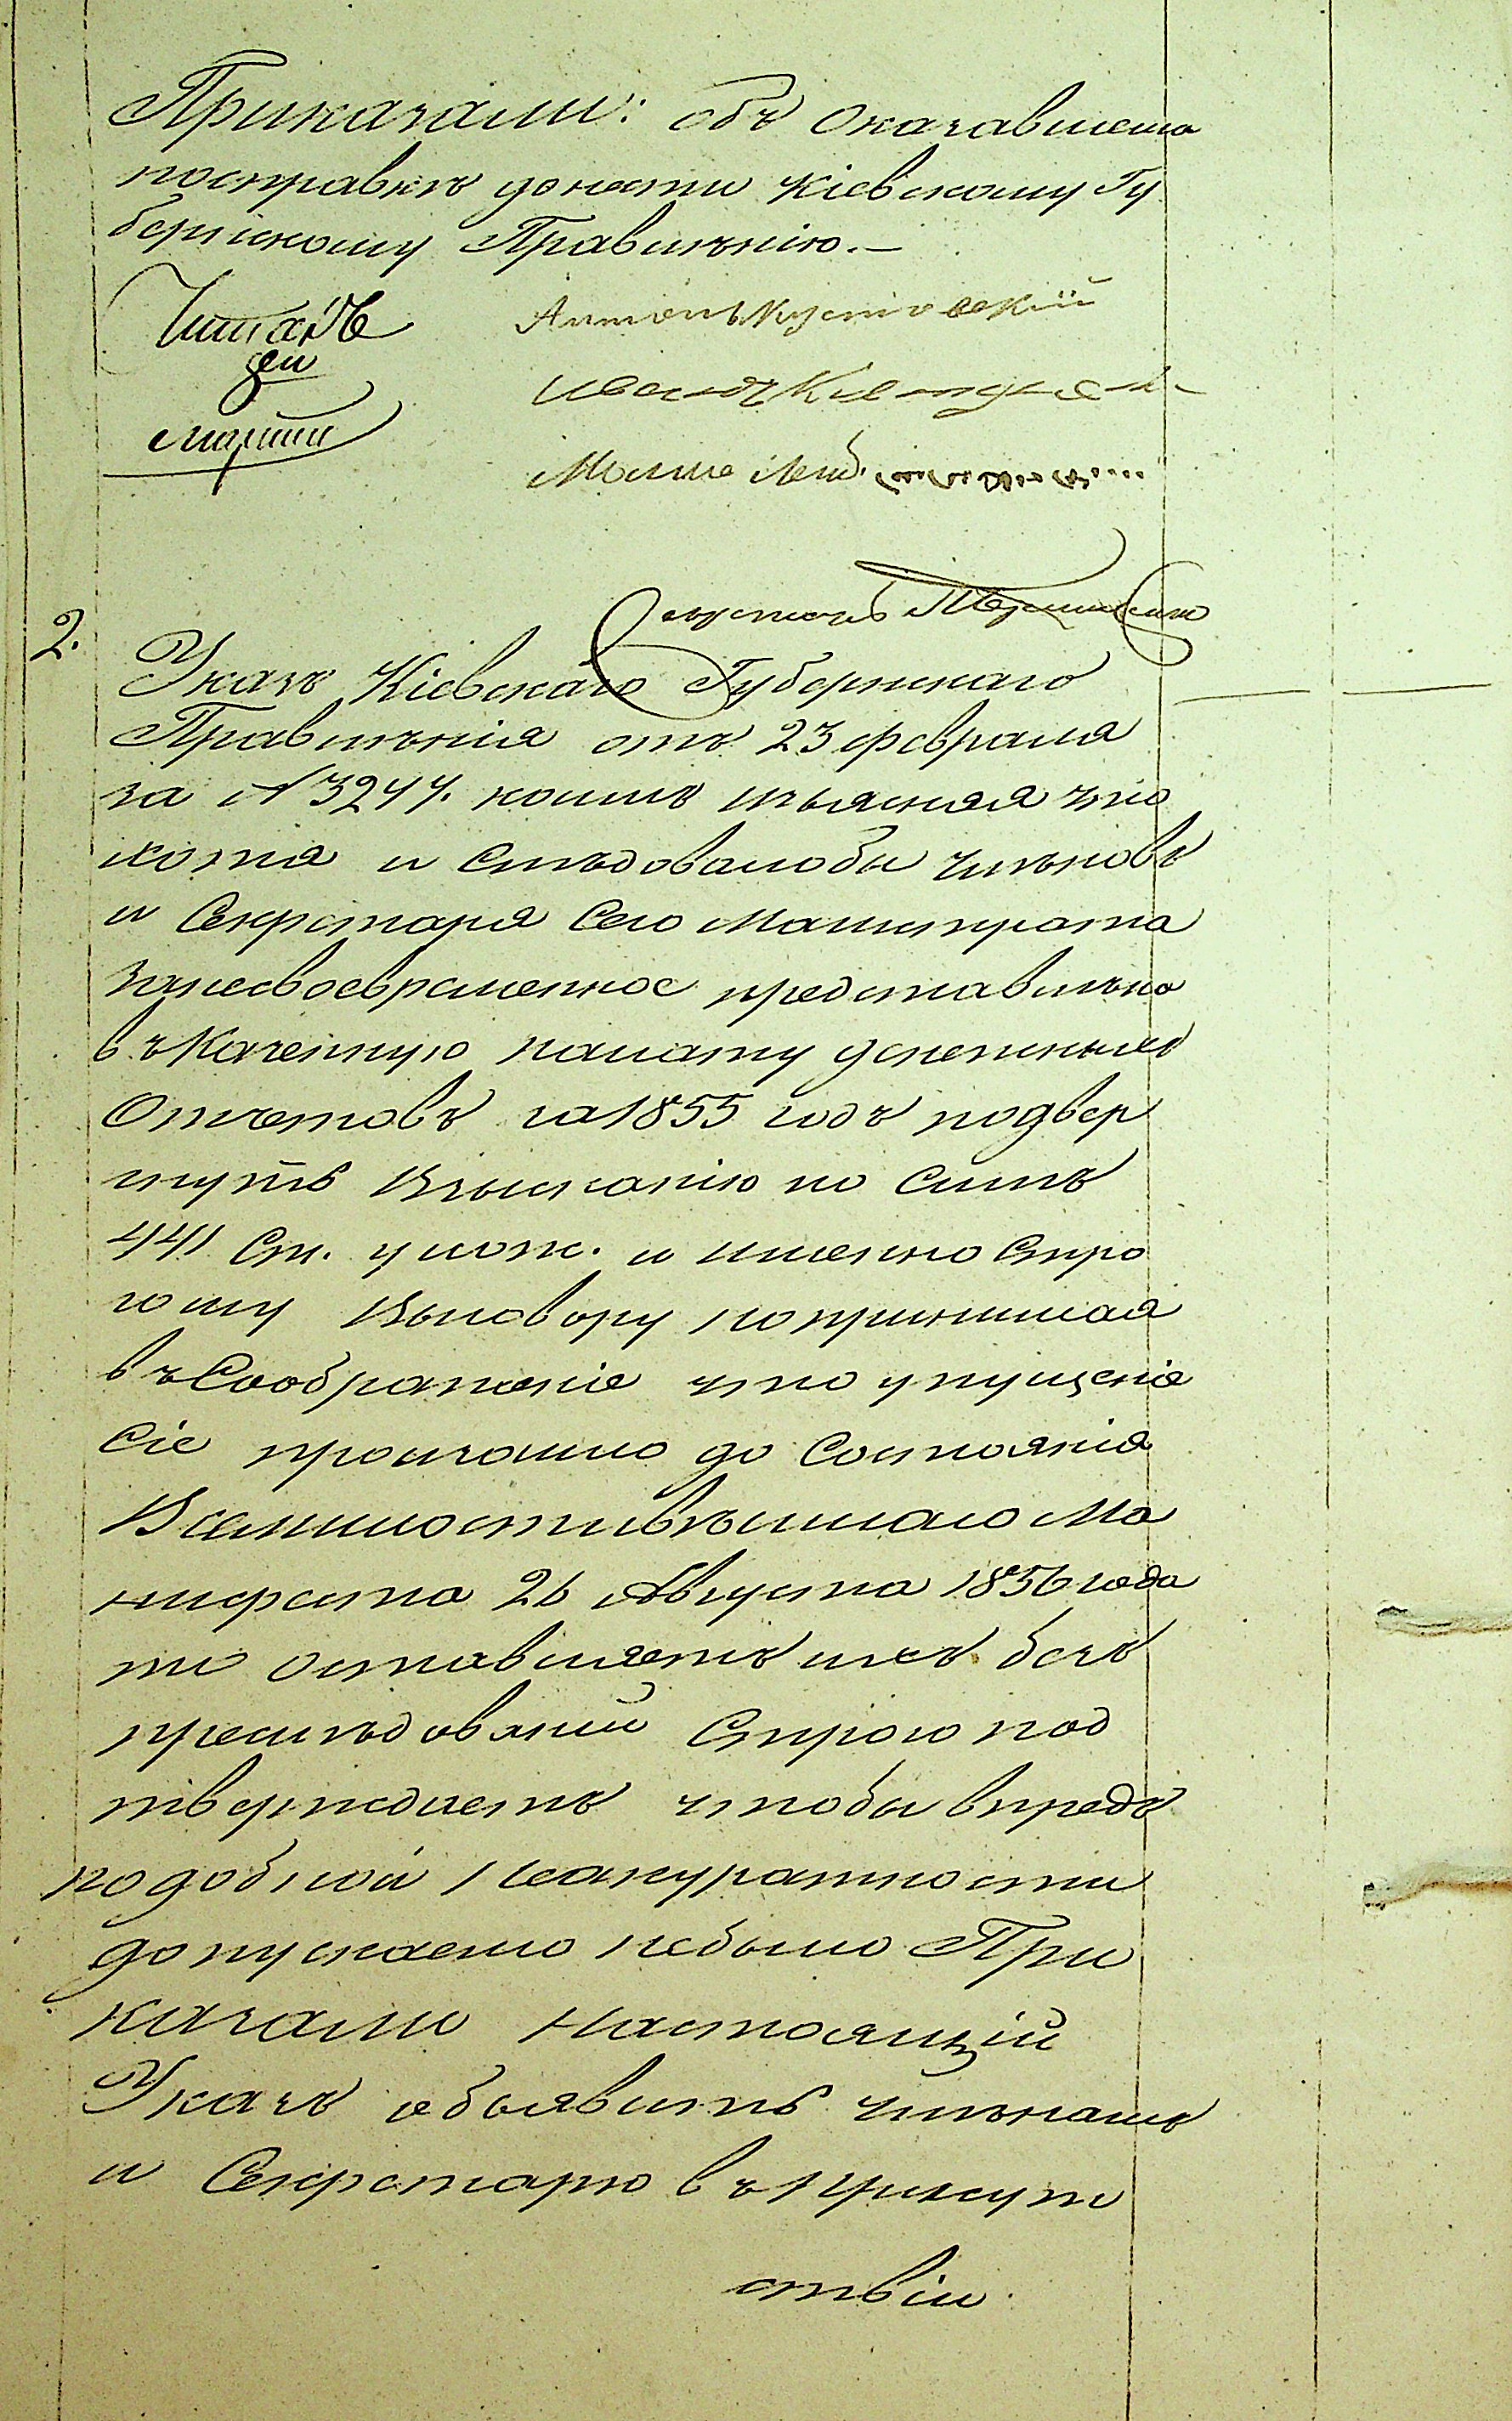 Приказали: объ оказавшемся
посправкѣ донести Кіевскому Гу
бернскому Правленію.—
Антонъ
Иванъ
Мошко Лейб
2.
Указъ Кіевскаго Губернскаго
Правленія отъ 23 февраля
за № 3244. коимъ изъясняя что
хотя и Слѣдовалобы членовъ
и Секретаря Сего Магистрата
занесвоевременное представленіе
въ Казенную палату денежныхъ
Отчетовъ за 1855 годъ подвер
гнуть Взысканію по Силѣ
441 Ст. улож. и именно Стро
гому Выговору но принимая
въ Соображеніе что упущеніе
Сіе произошло до Состоянія
Всемилостивѣйшаго Ма
нифеста 26 Августа 1856 года
то оставляетъ ихъ безъ
преслѣдованій Строго под
тверждаетъ чтобы впредъ
подобной неакуратности
допускаемо небыло При
казали настоящій
Указъ объявить членамъ
и Секретарю въ присут
ствіи.